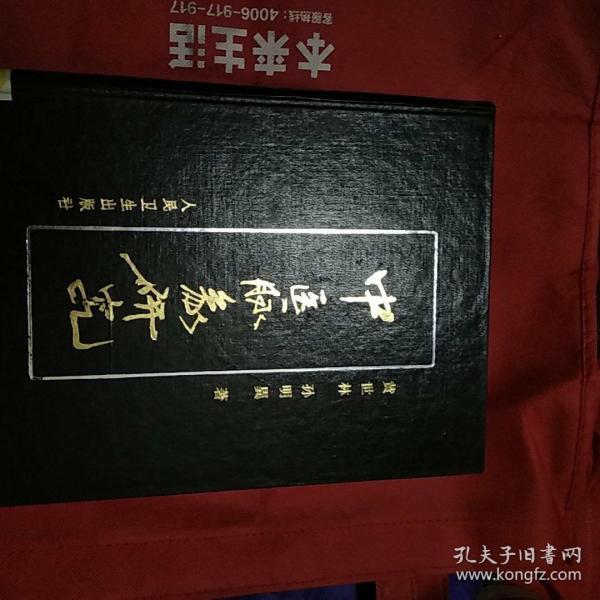 本来生活
客服热线：4006-917-917
中医脉象研究
黄世林 孙明异 著
人民卫生出版社
孔夫子旧书网
www.kongfz.com